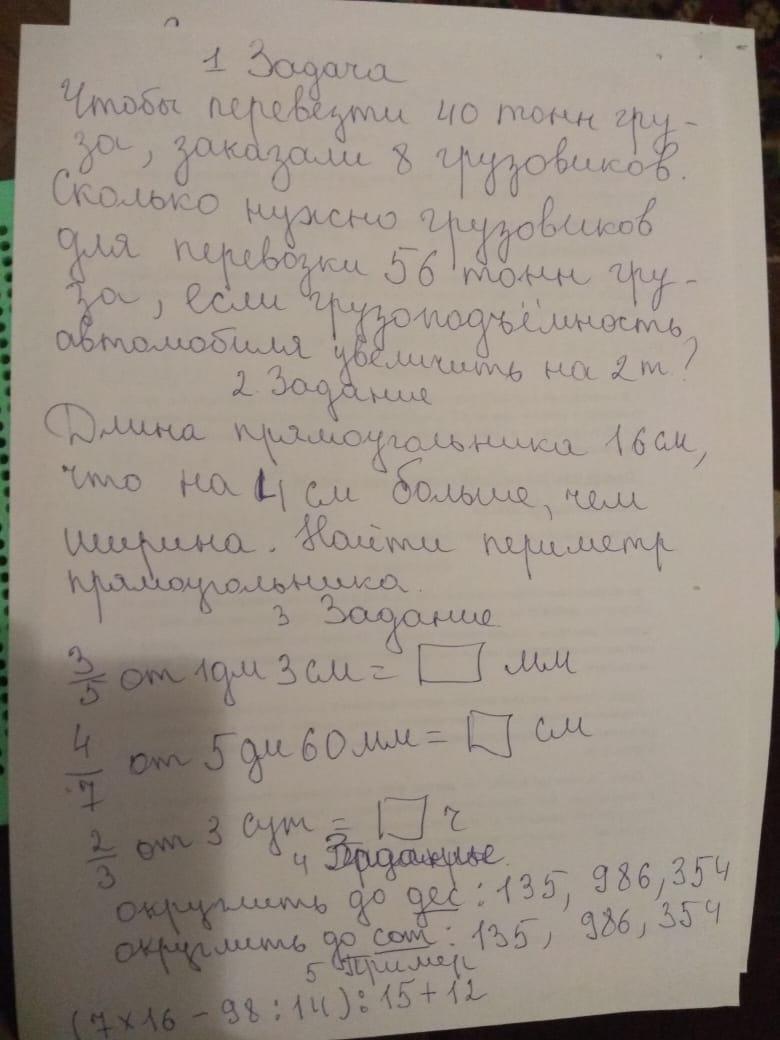 1 Задача
Чтобы перевезти 40 тонн гру-
за, заказали 8 грузовиков.
Сколько нужно грузовиков
для перевозки 56 тонн гру-
за, если грузоподъёмность
автомобиля увеличить на 2 т?
2 Задание
Длина прямоугольника 16 см,
что на 4 см больше, чем
ширина. Найти периметр
прямоугольника.
3 Задание
3/5 от 1 дм 3 см = □ мм
4/7 от 5 дм 60 мм = □ см
2/3 от 3 сут = □ ч
4 Задание
округлить до дес: 135, 986, 354
округлить до сот: 135, 986, 354
5 Пример
(7 × 16 - 98 : 14) : 15 + 12